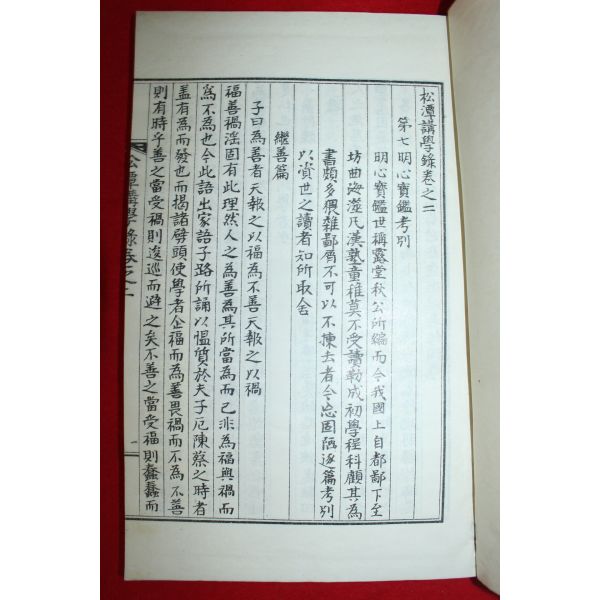 松潭講學錄卷之二
第七明心寶鑑考別
明心寶鑑世稱露堂秋公所編而今我國上自都鄙下至
坊曲海澨凡漢塾童稚莫不受讀勒成初學程科顧其為
書頗多猥雜鄙屑不可以不揀去者今忘固陋逐篇考別
以資世之讀者知所取舍
繼善篇
子曰為善者天報之以福為不善天報之以禍
福善禍淫固有此理然人之為善為其所當為而已非為福與禍而
為不為也今此語出家語子路所誦以慍質於夫子厄陳蔡之時者
盖有為而發也而揭諸劈頭使學者企福而為善畏禍而不為不善
則有時乎善之當受禍則逡巡而避之矣不善之當受福則蠢蠢而
松潭講學錄卷之二
一